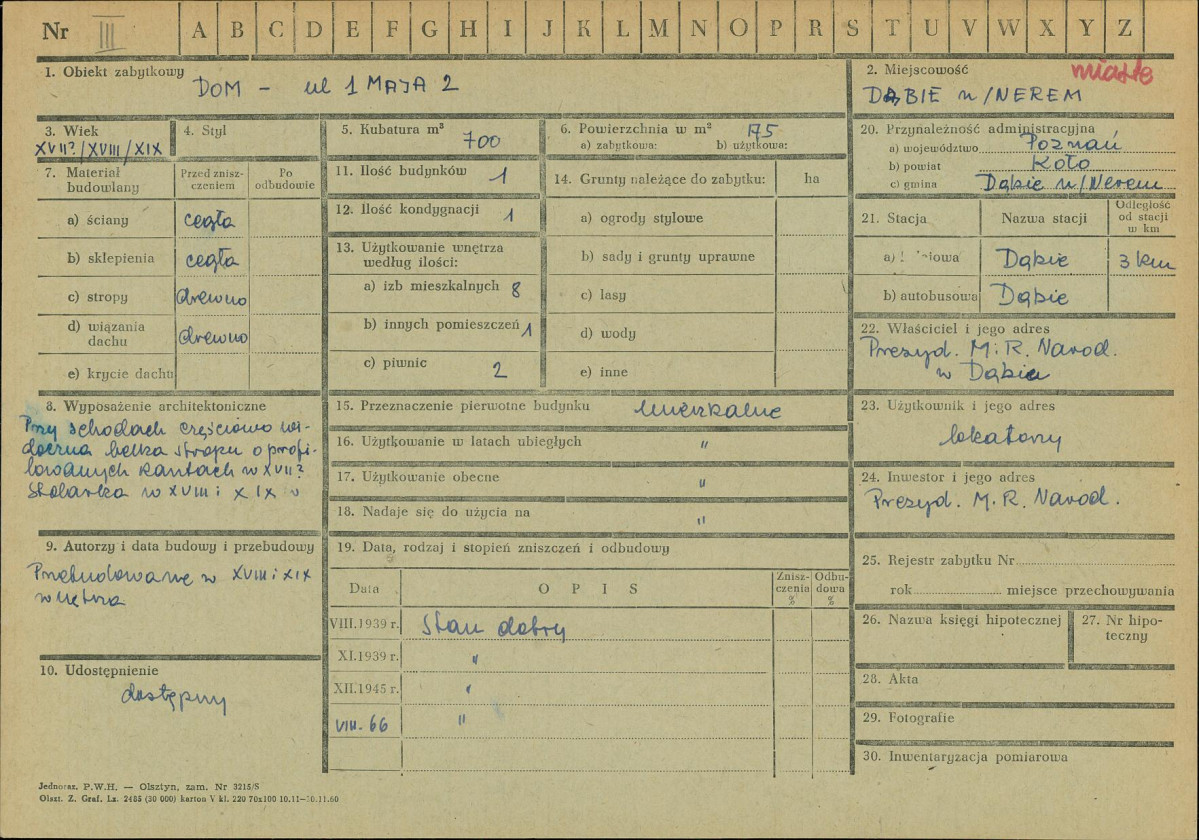 Nr III A B C D E F G H I J K L M N O P R S T U V W X Y Z
1. Obiekt zabytkowy DOM - ul 1 MAJA 2
2. Miejscowość miasto
DĄBIE n/NEREM
3. Wiek
XVII?/XVIII/XIX
4. Styl
5. Kubatura m³ 700
6. Powierzchnia w m² 175
a) zabytkowa: b) użytkowa:
7. Materiał budowlany
Przed zniszczeniem
Po odbudowie
a) ściany cegła
b) sklepienia cegła
c) stropy drewno
d) wiązania dachu drewno
e) krycie dachu
8. Wyposażenie architektoniczne
Przy schodach częściowo wi-
doczna belka stropu o profi-
lowanych kantach w XVII?
Stolarka w XVIII i XIX
9. Autorzy i data budowy i przebudowy
Przebudowane w XVIII i XIX
wnętrza
10. Udostępnienie
dostępny
11. Ilość budynków 1
12. Ilość kondygnacji 1
13. Użytkowanie wnętrza
według ilości:
a) izb mieszkalnych 8
b) innych pomieszczeń 1
c) piwnic 2
14. Grunty należące do zabytku: ha
a) ogrody stylowe
b) sady i grunty uprawne
c) lasy
d) wody
e) inne
15. Przeznaczenie pierwotne budynku mieszkalne
16. Użytkowanie w latach ubiegłych "
17. Użytkowanie obecne "
18. Nadaje się do użycia na "
19. Data, rodzaj i stopień zniszczeń i odbudowy
Data OPIS Zniszczenia % Odbudowa %
VIII.1939 r. Stan dobry
XI.1939 r. "
XII.1945 r. "
VIII. 66 "
20. Przynależność administracyjna
a) województwo Poznań
b) powiat Koło
c) gmina Dąbie n/Nerem
21. Stacja Nazwa stacji Odległość od stacji w km
a) Dąbie 3 km
b) autobusowa Dąbie
22. Właściciel i jego adres
Prezyd. M. R. Narod.
w Dąbiu
23. Użytkownik i jego adres
lokatorzy
24. Inwestor i jego adres
Prezyd. M. R. Narod.
25. Rejestr zabytku Nr
rok miejsce przechowywania
26. Nazwa księgi hipotecznej
27. Nr hipo-
teczny
28. Akta
29. Fotografie
30. Inwentaryzacja pomiarowa
Jednoraz. P.W.H. — Olsztyn, zam. Nr 3215/S
Olszt. Z. Graf. Lz. 2485 (30 000) karton V kl. 220 70x100 10.11-10.11.60